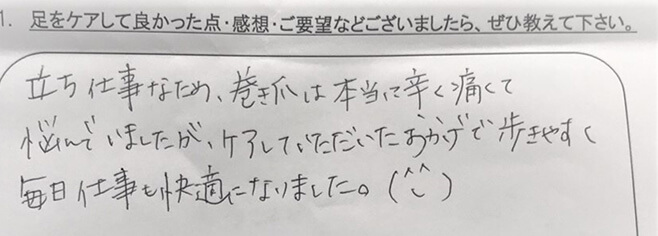 1. 足をケアして良かった点・感想・ご要望などございましたら、ぜひ教えて下さい。
立ち仕事なため、巻き爪は本当に辛く痛くて
悩んでいましたが、ケアしていただいたおかげで歩きやすく
毎日仕事も快適になりました。(^^)